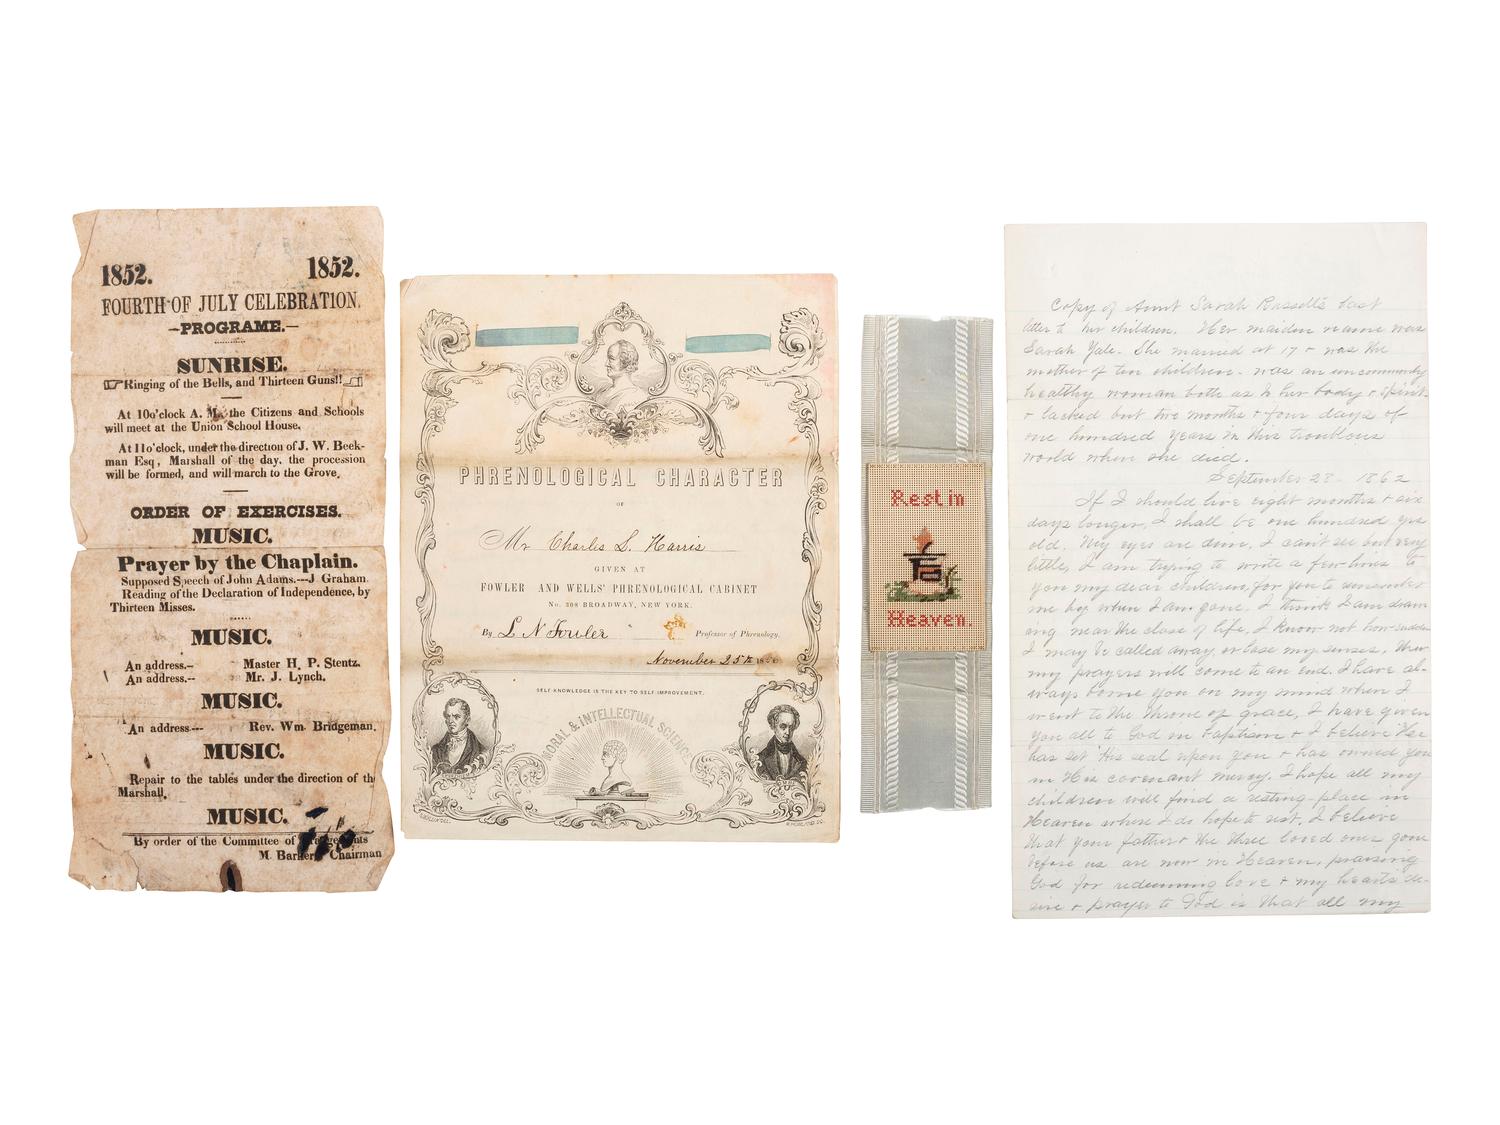 1852. 1852.
FOURTH OF JULY CELEBRATION.
—PROGRAME.—
SUNRISE.
Ringing of the Bells, and Thirteen Guns!!
At 10o'clock A. M. the Citizens and Schools
will meet at the Union School House.
At 11o'clock, under the direction of J. W. Beek-
man Esq, Marshall of the day, the procession
will be formed, and will march to the Grove.
ORDER OF EXERCISES.
MUSIC.
Prayer by the Chaplain.
Supposed Speech of John Adams.---J Graham.
Reading of the Declaration of Independence, by
Thirteen Misses.
MUSIC.
An address.- Master H. P. Stentz.
An address.-- Mr. J. Lynch.
MUSIC.
An address--- Rev. Wm. Bridgeman.
MUSIC.
Repair to the tables under the direction of the
Marshall.
MUSIC.
By order of the Committee of
M. Barker Chairman
PHRENOLOGICAL CHARACTER
OF
Mr Charles S. Harris
GIVEN AT
FOWLER AND WELLS' PHRENOLOGICAL CABINET
No. 308 BROADWAY, NEW YORK.
By L N Fowler Professor of Phrenology.
November 25th 18
SELF-KNOWLEDGE IS THE KEY TO SELF IMPROVEMENT.
MORAL & INTELLECTUAL SCIENCE
Rest in
Heaven.
Copy of Aunt Sarah Russell's last
letter to her children. Her maiden name was
Sarah Yale. She married at 17 + was the
mother of ten children. was an uncommonly
healthy woman both as to her body + spirit
+ lacked but two months + four days of
one hundred years in this troublous
world when she died.
September 23 - 1862
If I should live eight months + six
days longer, I shall be one hundred yrs
old. My eyes are dim, I can't see but very
little, I am trying to write a few lines to
you my dear children, for you to remember
me by when I am gone. I think I am draw-
ing near the close of life, I know not how sudden
I may be called away, or lose my senses, then
my prayers will come to an end. I have al-
ways borne you on my mind when I
went to the throne of grace, I have given
you all to God in baptism + I believe He
has set His seal upon you + has owned you
in His covenant mercy. I hope all my
children will find a resting-place in
Heaven where I do hope to rest. I believe
that your father + the three loved ones gone
before us are now in Heaven, praising
God for redeeming love + my heart's de-
sire + prayer to God is that all my